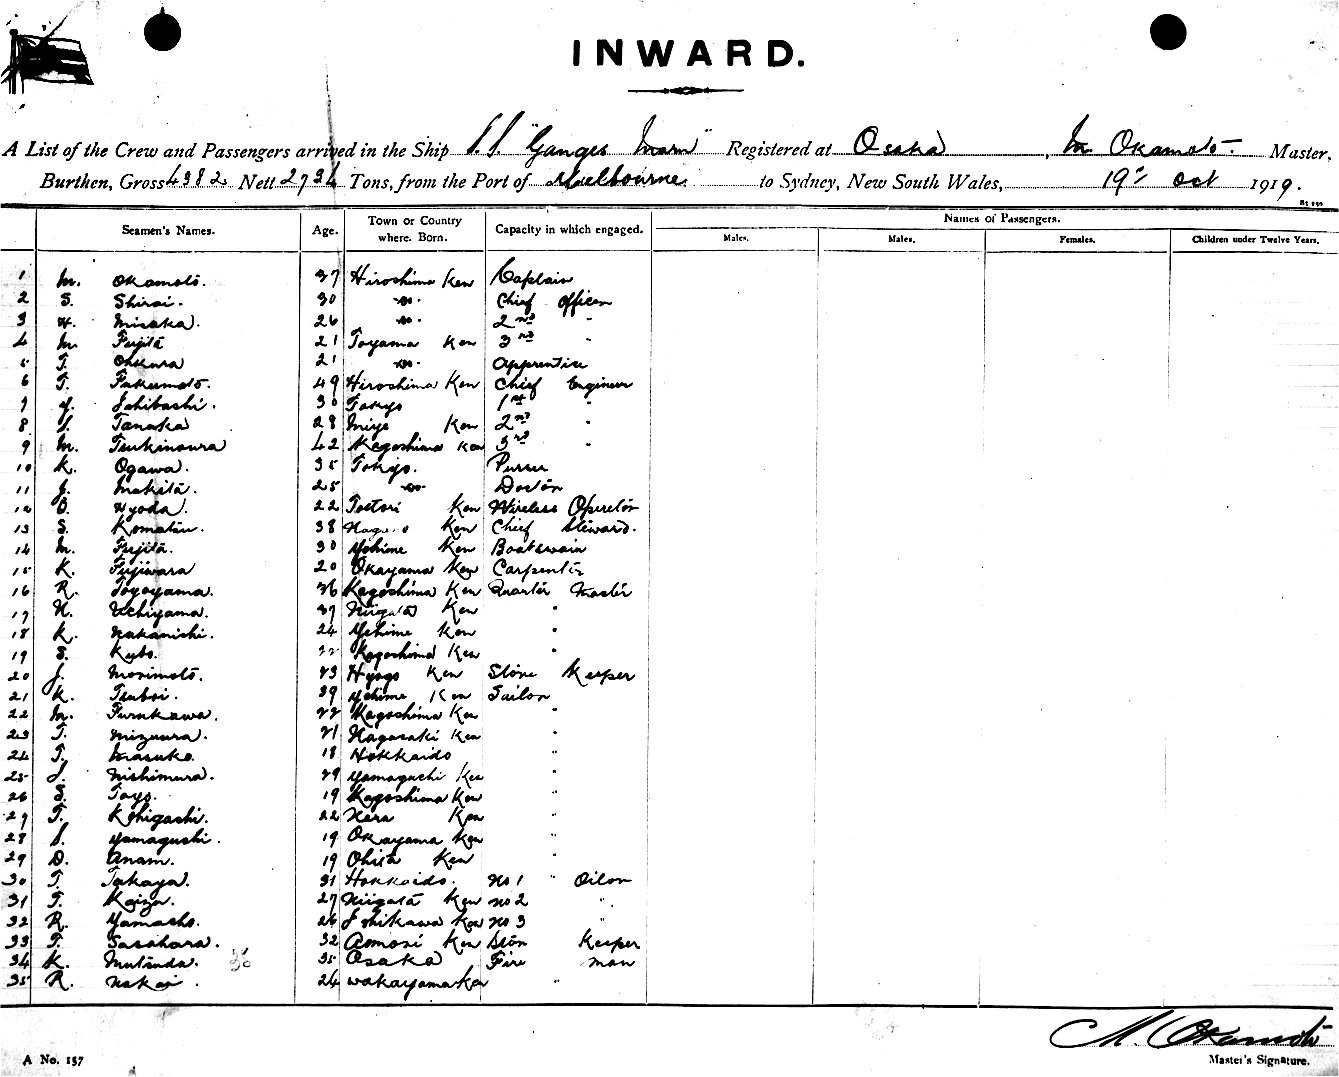 INWARD.
A List of the Crew and Passengers arrived in the Ship S.S. "Ganges Maru" Registered at Osaka, M. Okamoto. Master,
Burthen, Gross 4382 Nett 2734 Tons, from the Port of Melbourne to Sydney, New South Wales, 19th Oct 1919.
Names of Passengers.
Seamen's Names. Age. Town or Country where. Born. Capacity in which engaged. Males. Males. Females. Children under Twelve Years.
1 M. Okamoto. 37 Hiroshima Ken Captain
2 S. Shirai. 30 -do- Chief Officer
3 H. Misaka. 26 -do- 2nd "
4 M. Fujita 21 Toyama Ken 3rd "
5 T. Ohkura 21 -do- Apprentice
6 T. Fukumoto. 49 Hiroshima Ken Chief Engineer
7 Y. Ishibashi. 30 Tokyo 1st "
8 S. Tanaka 28 Miye Ken 2nd "
9 M. Tsukinoura 42 Kagoshima Ken 3rd "
10 K. Ogawa. 35 Tokyo. Purser
11 J. Makita. 25 -do- Doctor
12 O. Hyoda. 22 Tottori Ken Wireless Operator
13 S. Komatsu. 38 Ken Chief Steward.
14 M. Fujita. 30 Yehime Ken Boatswain
15 K. Fujiwara 20 Okayama Ken Carpenter
16 R. Toyoyama. 36 Kagoshima Ken Quarter Master
17 N. Uchiyama. 37 Niigata Ken "
18 K. Nakanishi. 24 Yehime Ken "
19 S. Kubo. Kagoshima Ken "
20 J. Morimoto. 23 Hyogo Ken Store Keeper
21 K. Tsuboi. 39 Yehime Ken Sailor
22 M. Furukawa. 22 Kagoshima Ken "
23 T. Mizuura. 21 Nagasaki Ken "
24 T. Masuko. 18 Hokkaido "
25 J. Nishimura. 29 Yamaguchi Ken "
26 S. Toyo. 19 Kagoshima Ken "
27 T. Kohigashi. 22 Nara Ken "
28 S. Yamaguchi. 19 Okayama Ken "
29 D. Anam. 19 Ohita Ken "
30 T. Takaya. 31 Hokkaido. No 1 " Oiler
31 T. Kaizu. 27 Niigata Ken No 2 "
32 R. Yamasho. 26 Ishikawa Ken No 3 "
33 T. Sasahara. 32 Aomori Ken Store Keeper
34 K. Mutsuda. 35 Osaka Fire man
35 R. Nakai. 24 Wakayama Ken "
M. Okamoto
A No. 157
Master's Signature.